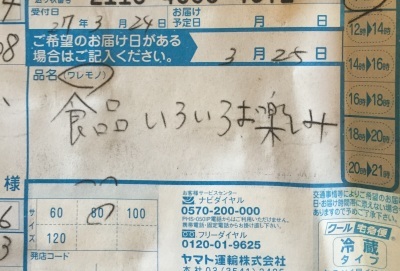 受付日 27年3月24日 お届け予定日 月 日
ご希望のお届け日がある場合はご記入ください。 3月25日
品名(ワレモノ)
食品いろいろお楽しみ
様
サイズ 60 80 100
120
発店コード
お客様サービスセンター
ナビダイヤル
0570-200-000
フリーダイヤル
0120-01-9625
ヤマト運輸株式会社
12時▶14時
14時▶16時
16時▶18時
18時▶20時
20時▶21時
クール宅急便
冷蔵
タイプ